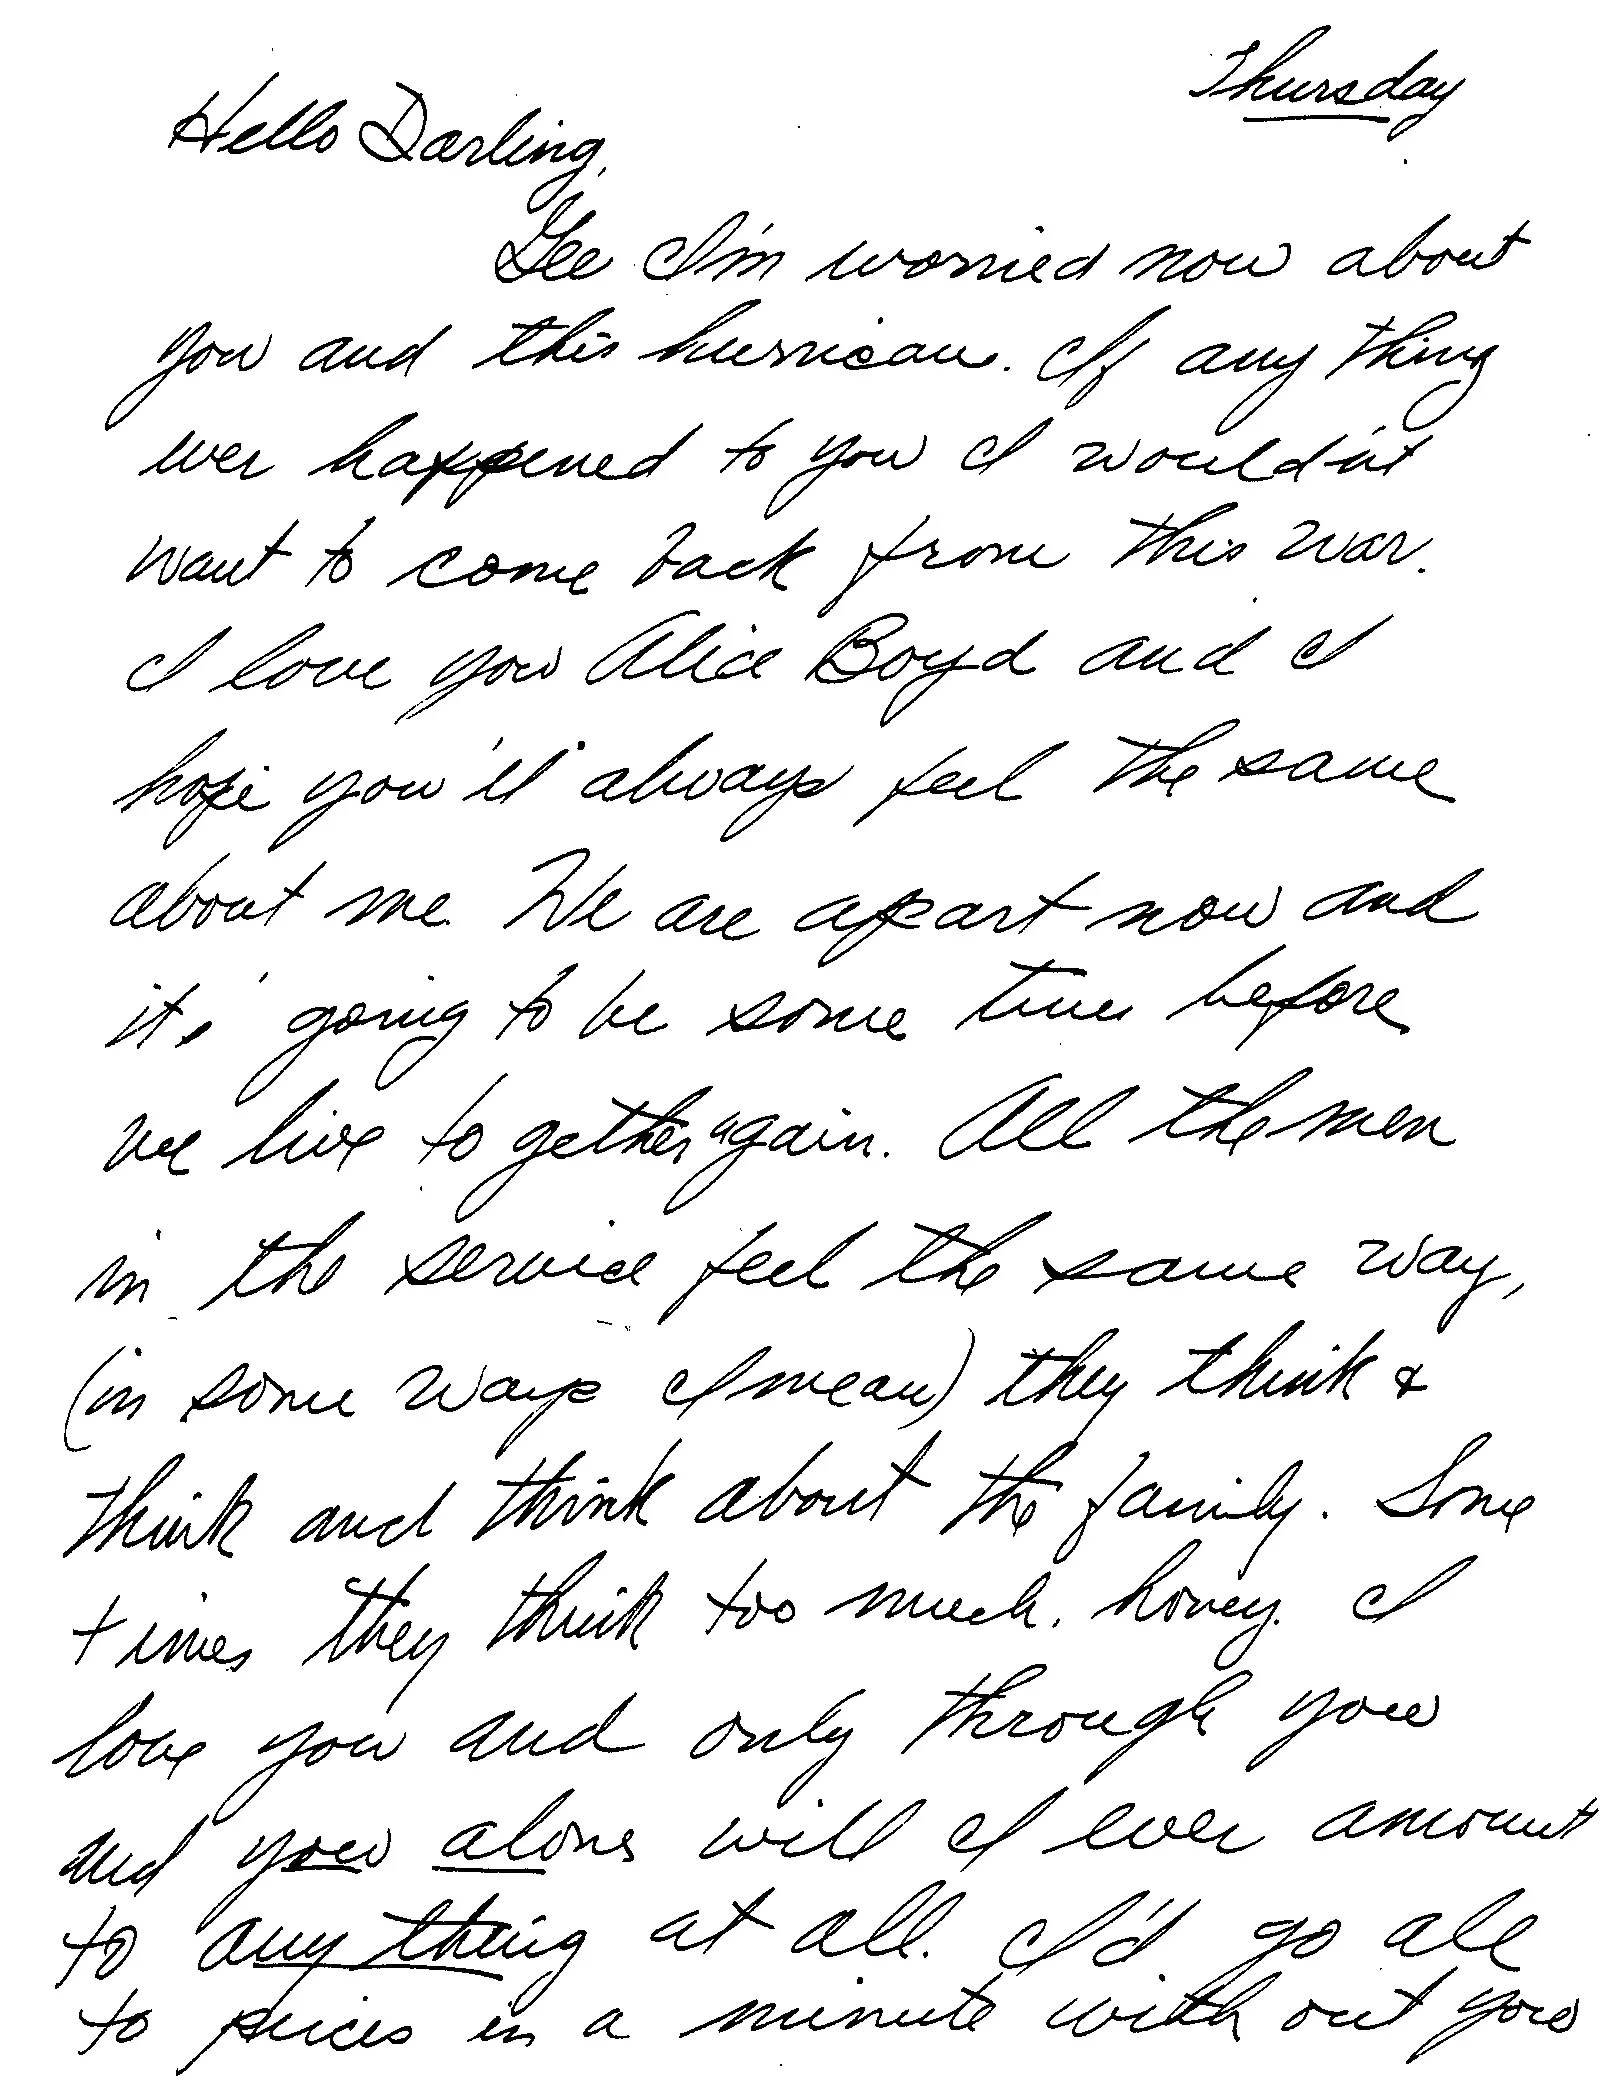 Thursday
Hello Darling,
Gee I'm worried now about
you and this hurricane. If any thing
ever happened to you I would'nt
want to come back from this war.
I love you Alice Boyd and I
hope you'll always feel the same
about me. We are apart now and
its' going to be some time before
we live to gether again. All the men
in the service feel the same way,
(in some ways I mean) they think &
think and think about the family. Some
times they think too much. honey. I
love you and only through you
and you alone will I ever amount
to any thing at all. I'd go all
to peices in a minute with out you